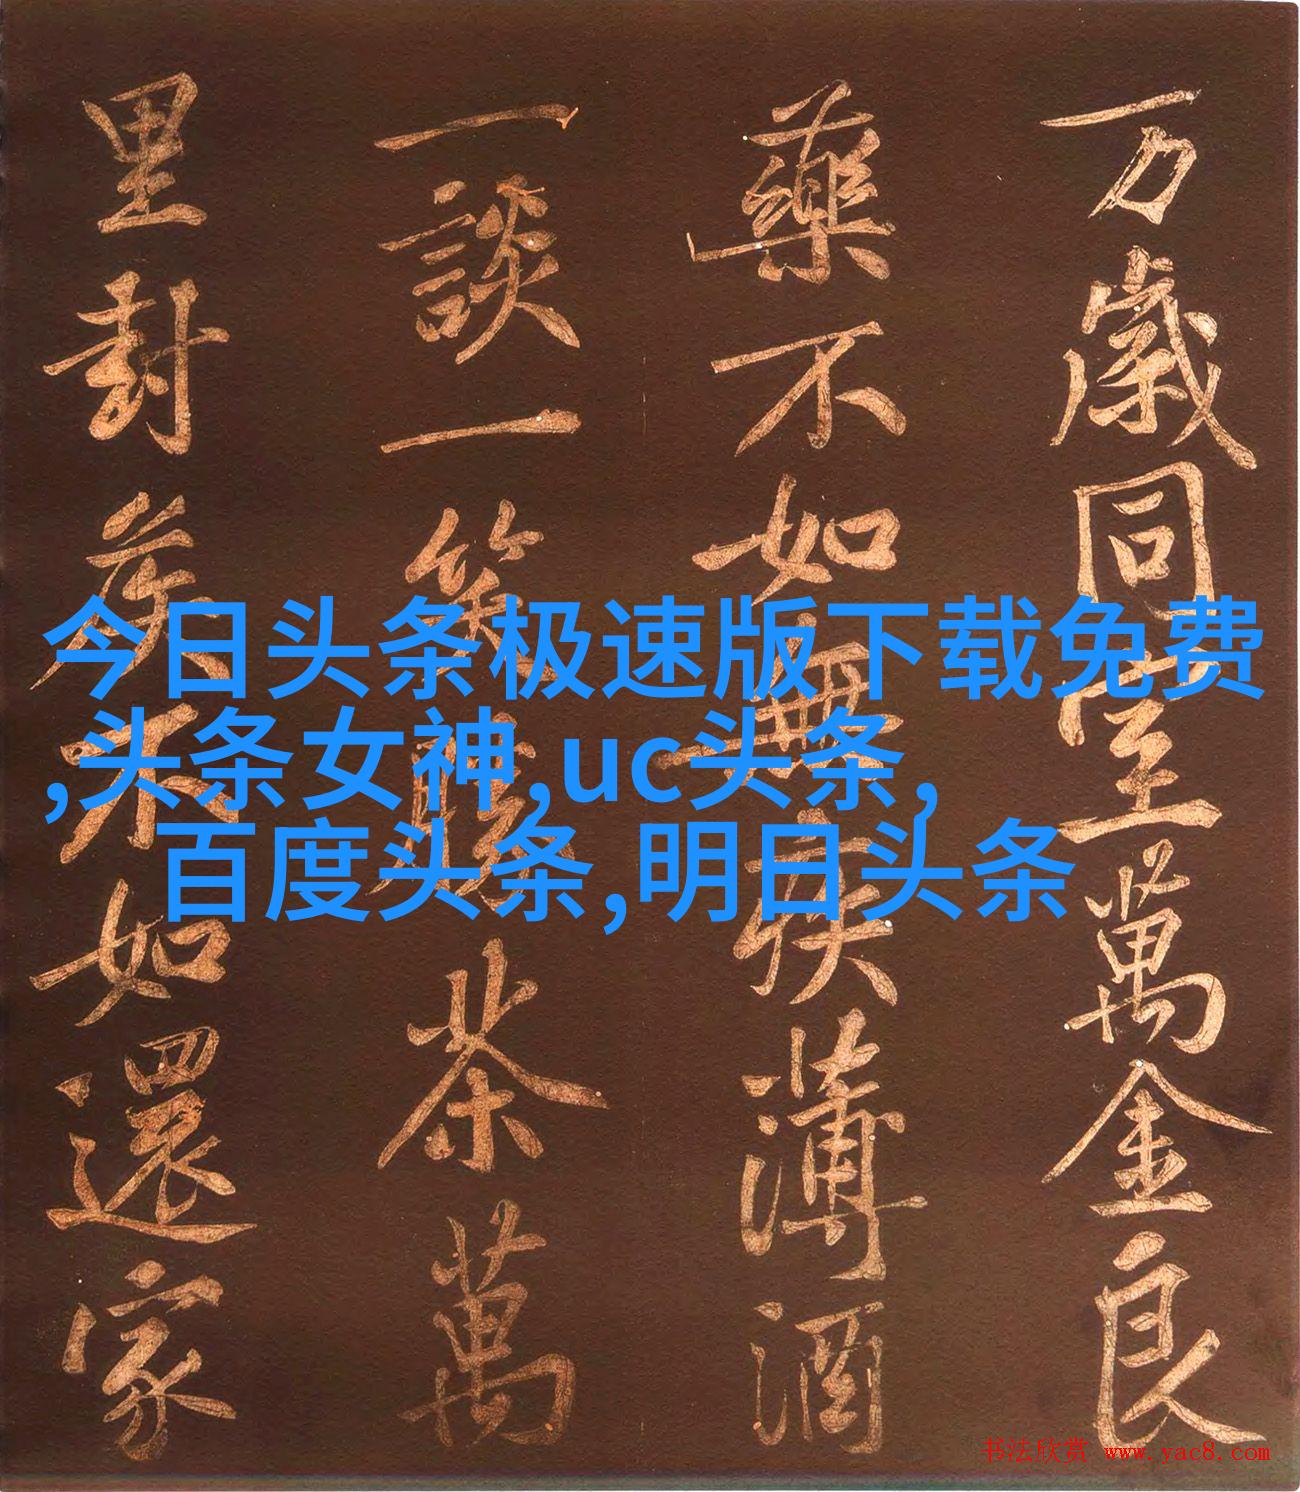 万歲同室萬金良
藥不如無疾薄酒
一談一笑勝茶萬
里封侯不如還家
今日头条极速版下载免费
,头条女神,uc头条,
百度头条,明日头条
书法欣赏 www.yac8.com